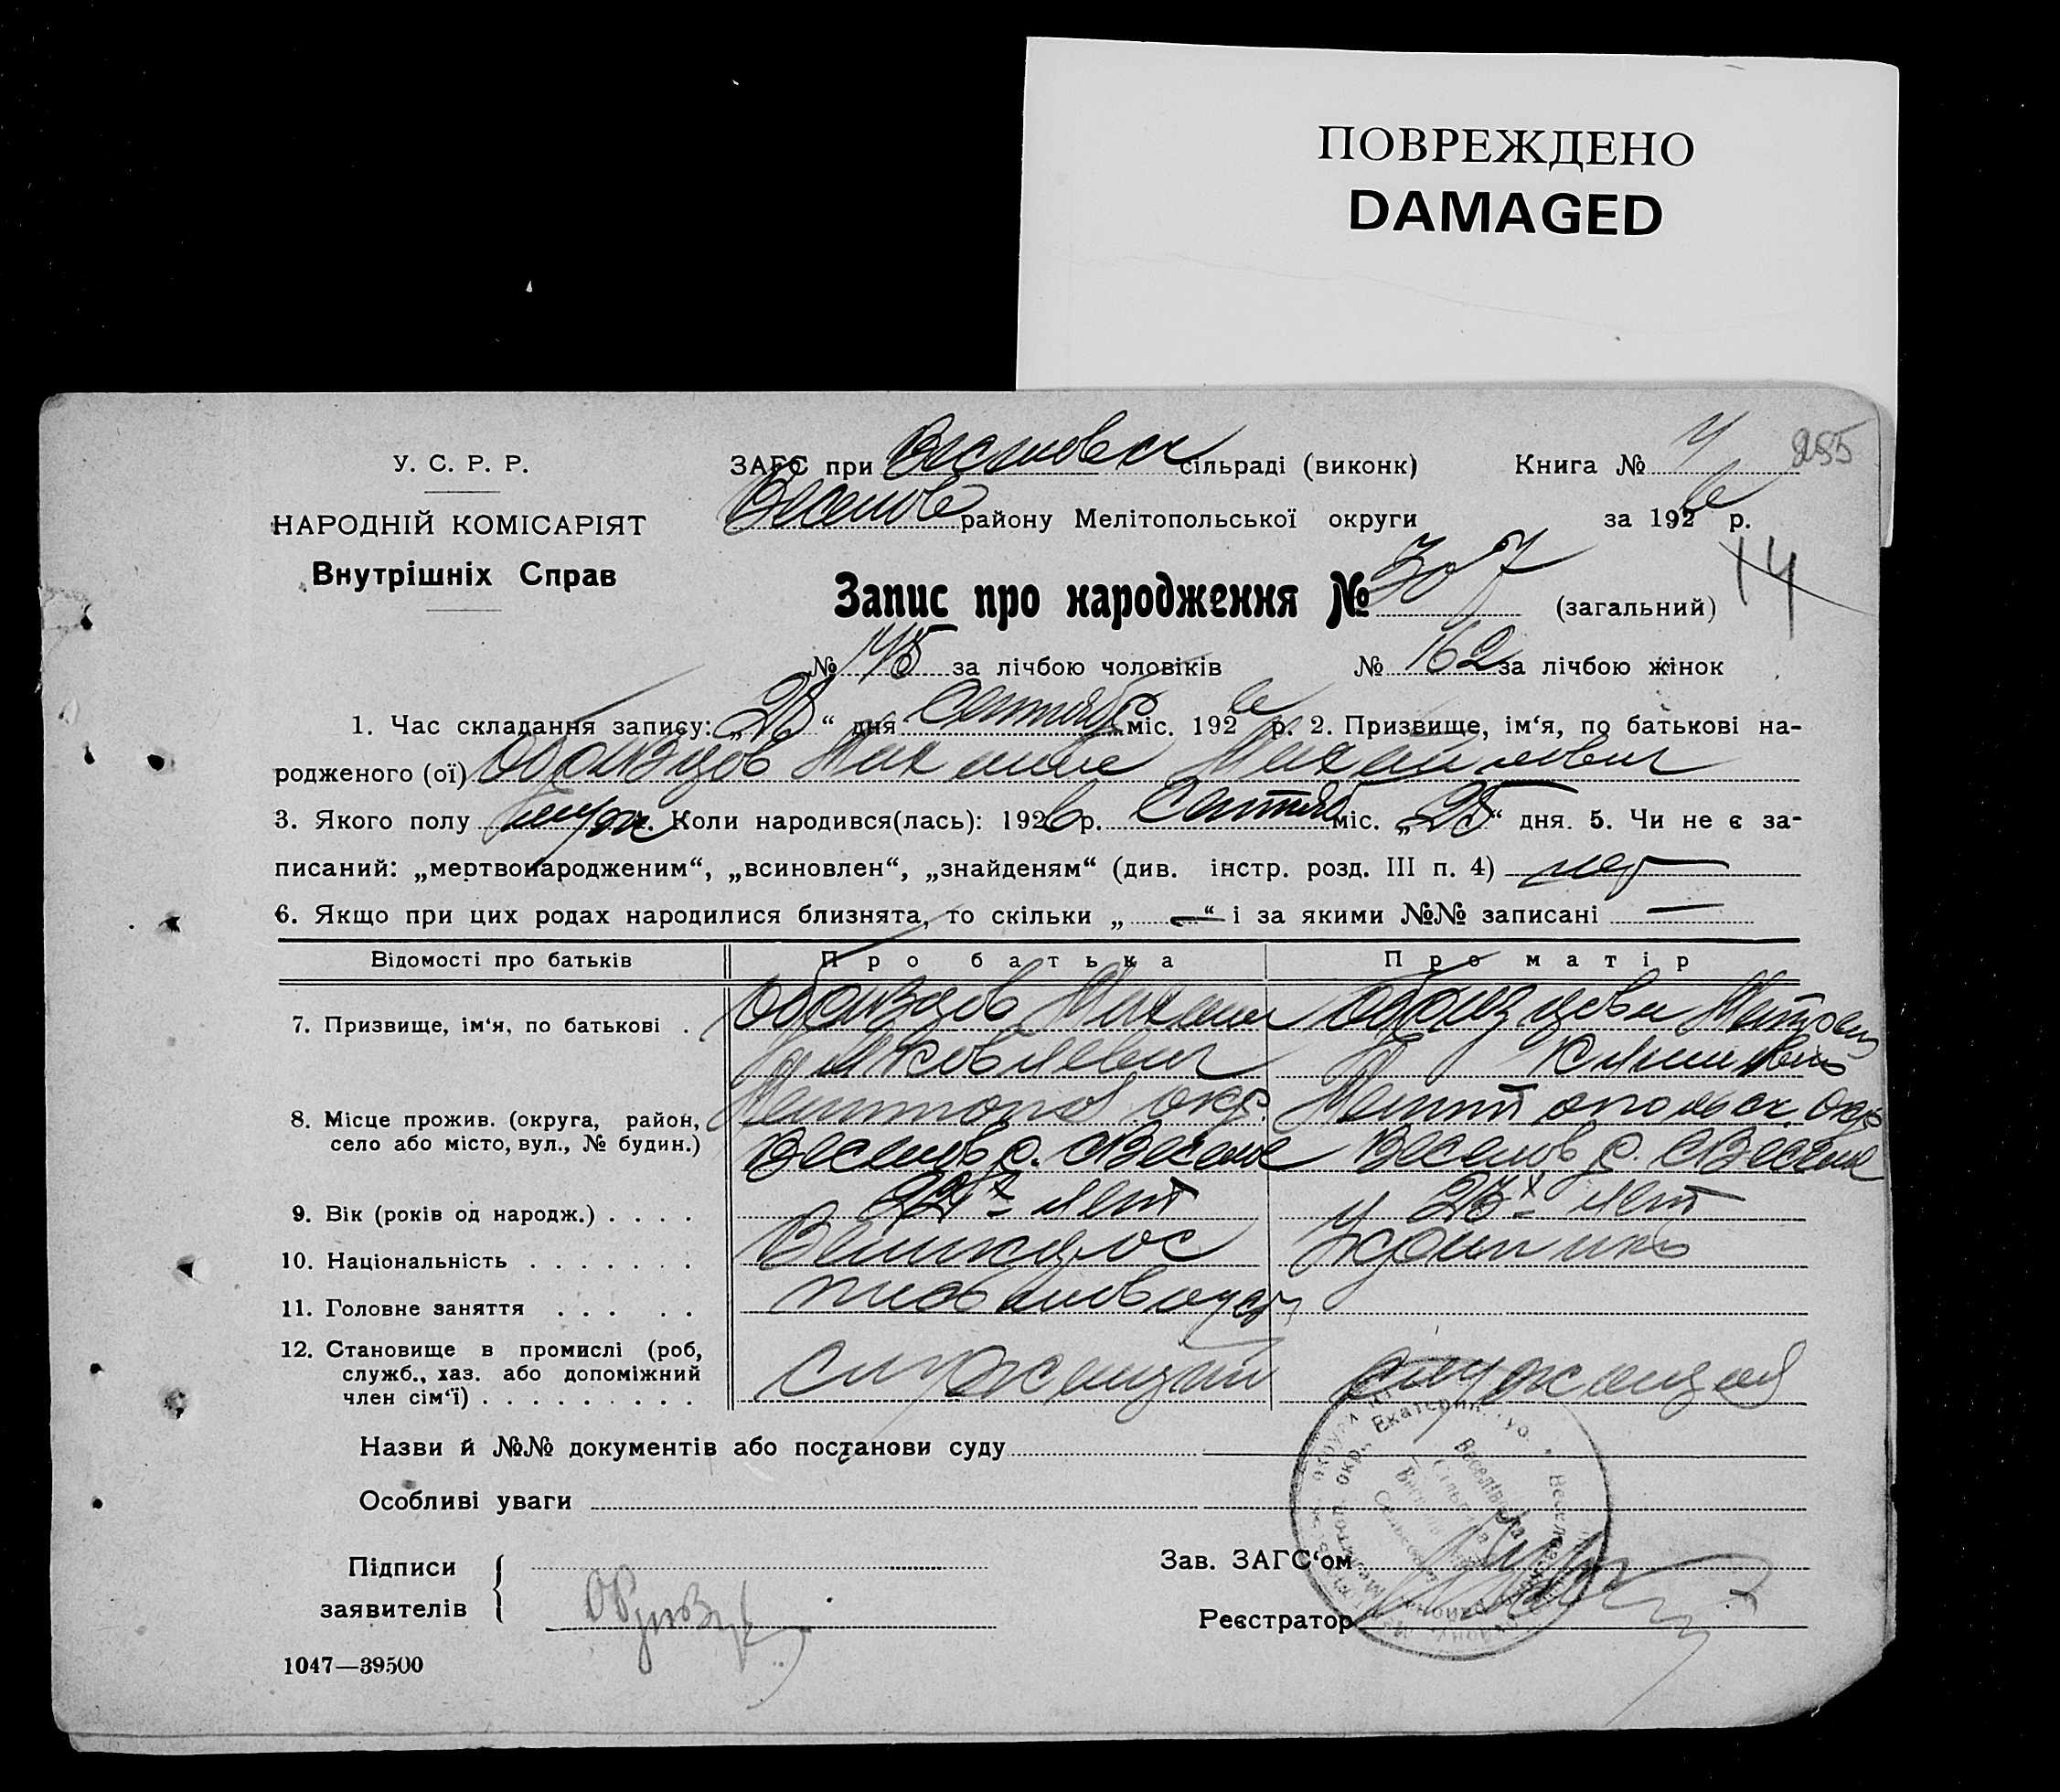 ПОВРЕЖДЕНО
DAMAGED
255
У. С. Р. Р.
НАРОДНІЙ КОМІСАРІЯТ
Внутрішніх Справ
ЗАГС при сільраді (виконк) Книга №
Веселов району Мелітопольської округи за 1926 р.
14
Запис про народження № 307 (загальний)
№ 145 за лічбою чоловіків № 162 за лічбою жінок
1. Час складання запису: „28“ дня Сентября міс. 1926 р. 2. Призвище, ім‘я, по батькові на-
родженого (ої) Образцов Михаил Михайлович
3. Якого полу муж. Коли народився(лась): 1926 р. Сентяб міс. „25“ дня. 5. Чи не є за-
писаний: „мертвонародженим“, „всиновлен“, „знайденям“ (див. інстр. розд. III п. 4) нет
6. Якщо при цих родах народилися близнята, то скільки „ — “ і за якими №№ записані —
Відомості про батьків Про батька Про матір
7. Призвище, ім‘я, по батькові . Образцов Михаил Образцова Матрена
Яковлевич
8. Місце прожив. (округа, район, Мелитопол окр. Мелитопольск. окр
село або місто, вул., № будин.) Веселов р. с Веселое Веселов р. с Веселое
9. Вік (років од народж.) . . . . лет лет
10. Національність . . . . . . . Великорос Украинка
11. Головне заняття . . . . .
12. Становище в промислі (роб, служащий служащая
служб., хаз. або допоміжний
член сім‘ї) . . . . . . . . .
Назви й №№ документів або постанови суду
Особливі уваги
Підписи
заявителів
Зав. ЗАГС‘ом
Реєстратор
1047—39500